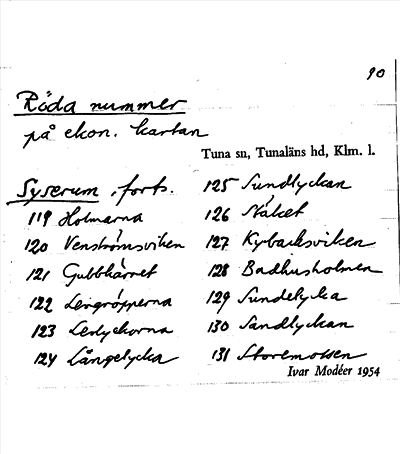 90
Röda nummer
på ekon. kartan
Tuna sn, Tunaläns hd, Klm. l.
Syserum, forts.
119 Holmarna
120 Venströmsviken
121 Gubbkärret
122 Lergröpperna
123 Lerlyckorna
124 Långelycka
125 Sundlyckan
126 Stäket
127 Kybacksviken
128 Badhusholmen
129 Sundelycka
130 Sandlyckan
131 Storemossen
Ivar Modéer 1954